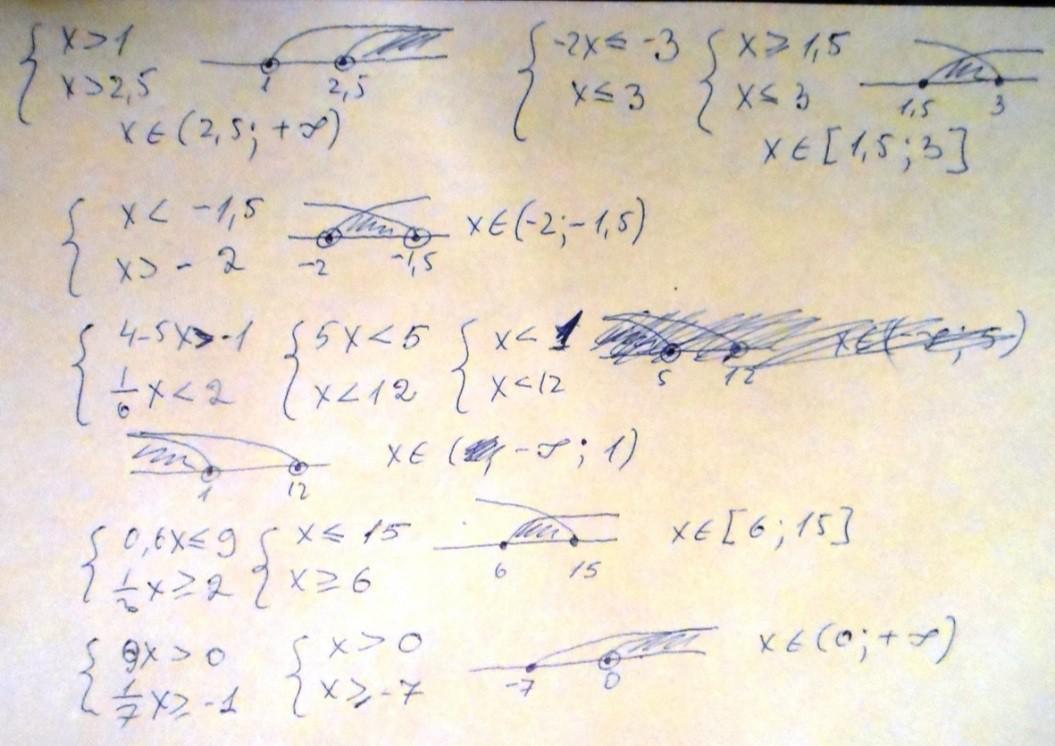 { x>1
x>2,5
1 2,5
x∈(2,5; +∞)
{ -2x≤-3
x≤3
{ x≥1,5
x≤3
1,5 3
x∈[1,5;3]
{ x<-1,5
x>-2
-2 -1,5
x∈(-2;-1,5)
{ 4-5x>-1
1/6 x<2
{ 5x<5
x<12
{ x<1
x<12
5 12
1 12
x∈(-∞;1)
{ 0,6x≤9
x≥2
{ x≤15
x≥6
6 15
x∈[6;15]
{ 9x>0
1/7 x≥-1
{ x>0
x≥-7
-7 0
x∈(0;+∞)